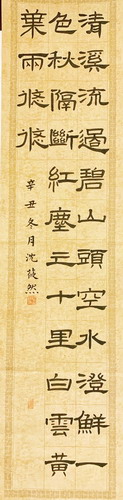 清溪流過碧山頭空水澄鮮一
色秋隔斷紅塵三十里白雲黃
葉兩悠悠
辛丑冬月沈然